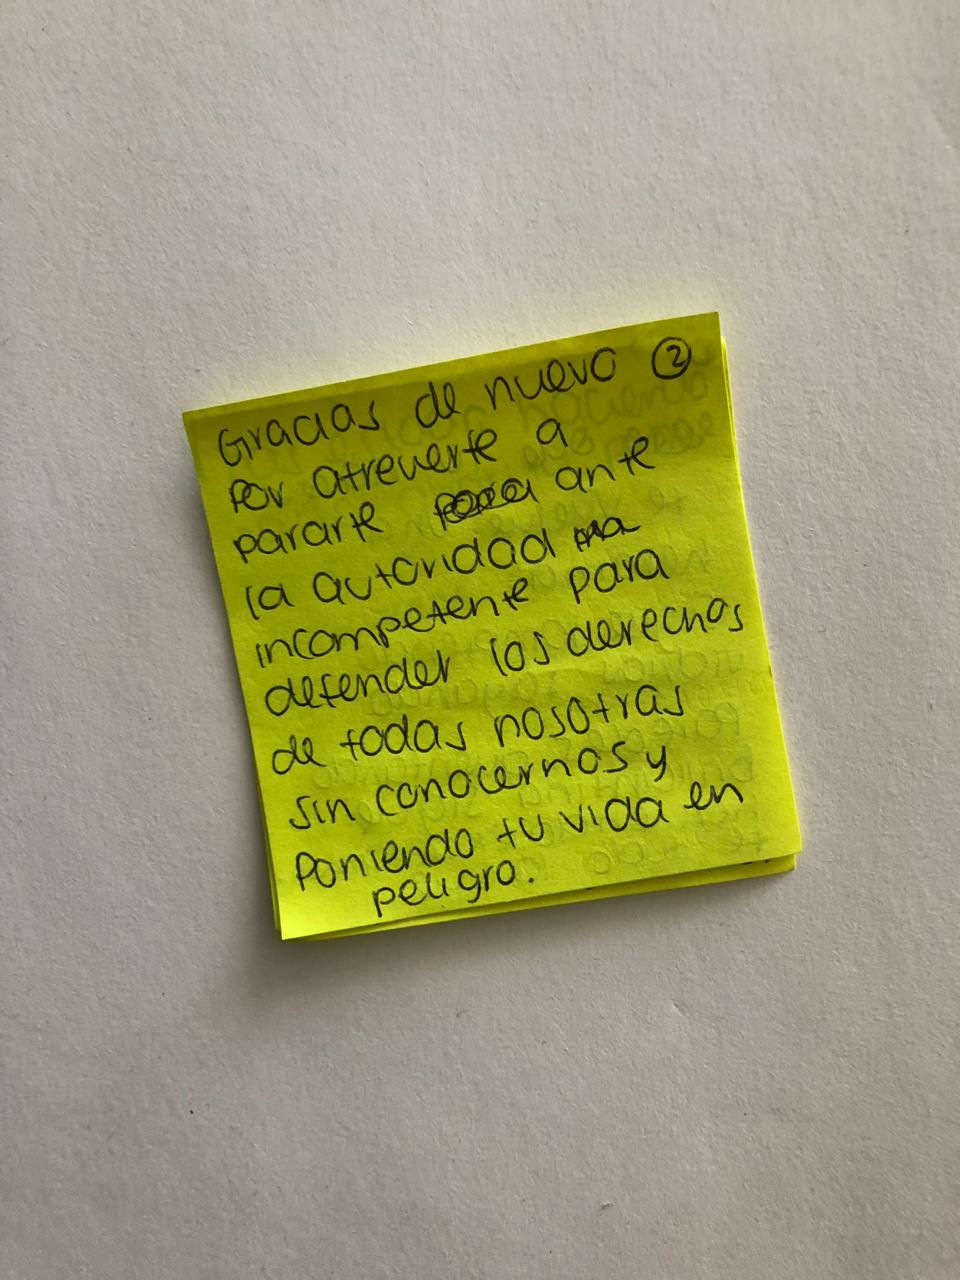 Gracias de nuevo ②
por atreverte a
pararte ante
la autoridad
incompetente para
defender los derechos
de todas nosotras
sin conocernos y
poniendo tu vida en
peligro.